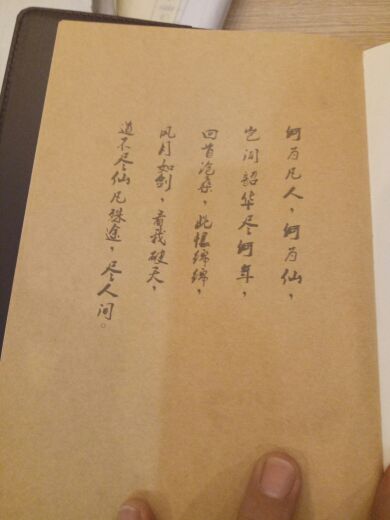 何为凡人，何为仙，
岂问韶华尽何年，
回首沧桑，此恨绵绵，
风月如剑，看我破天，
道不尽仙凡殊途，尽人间。